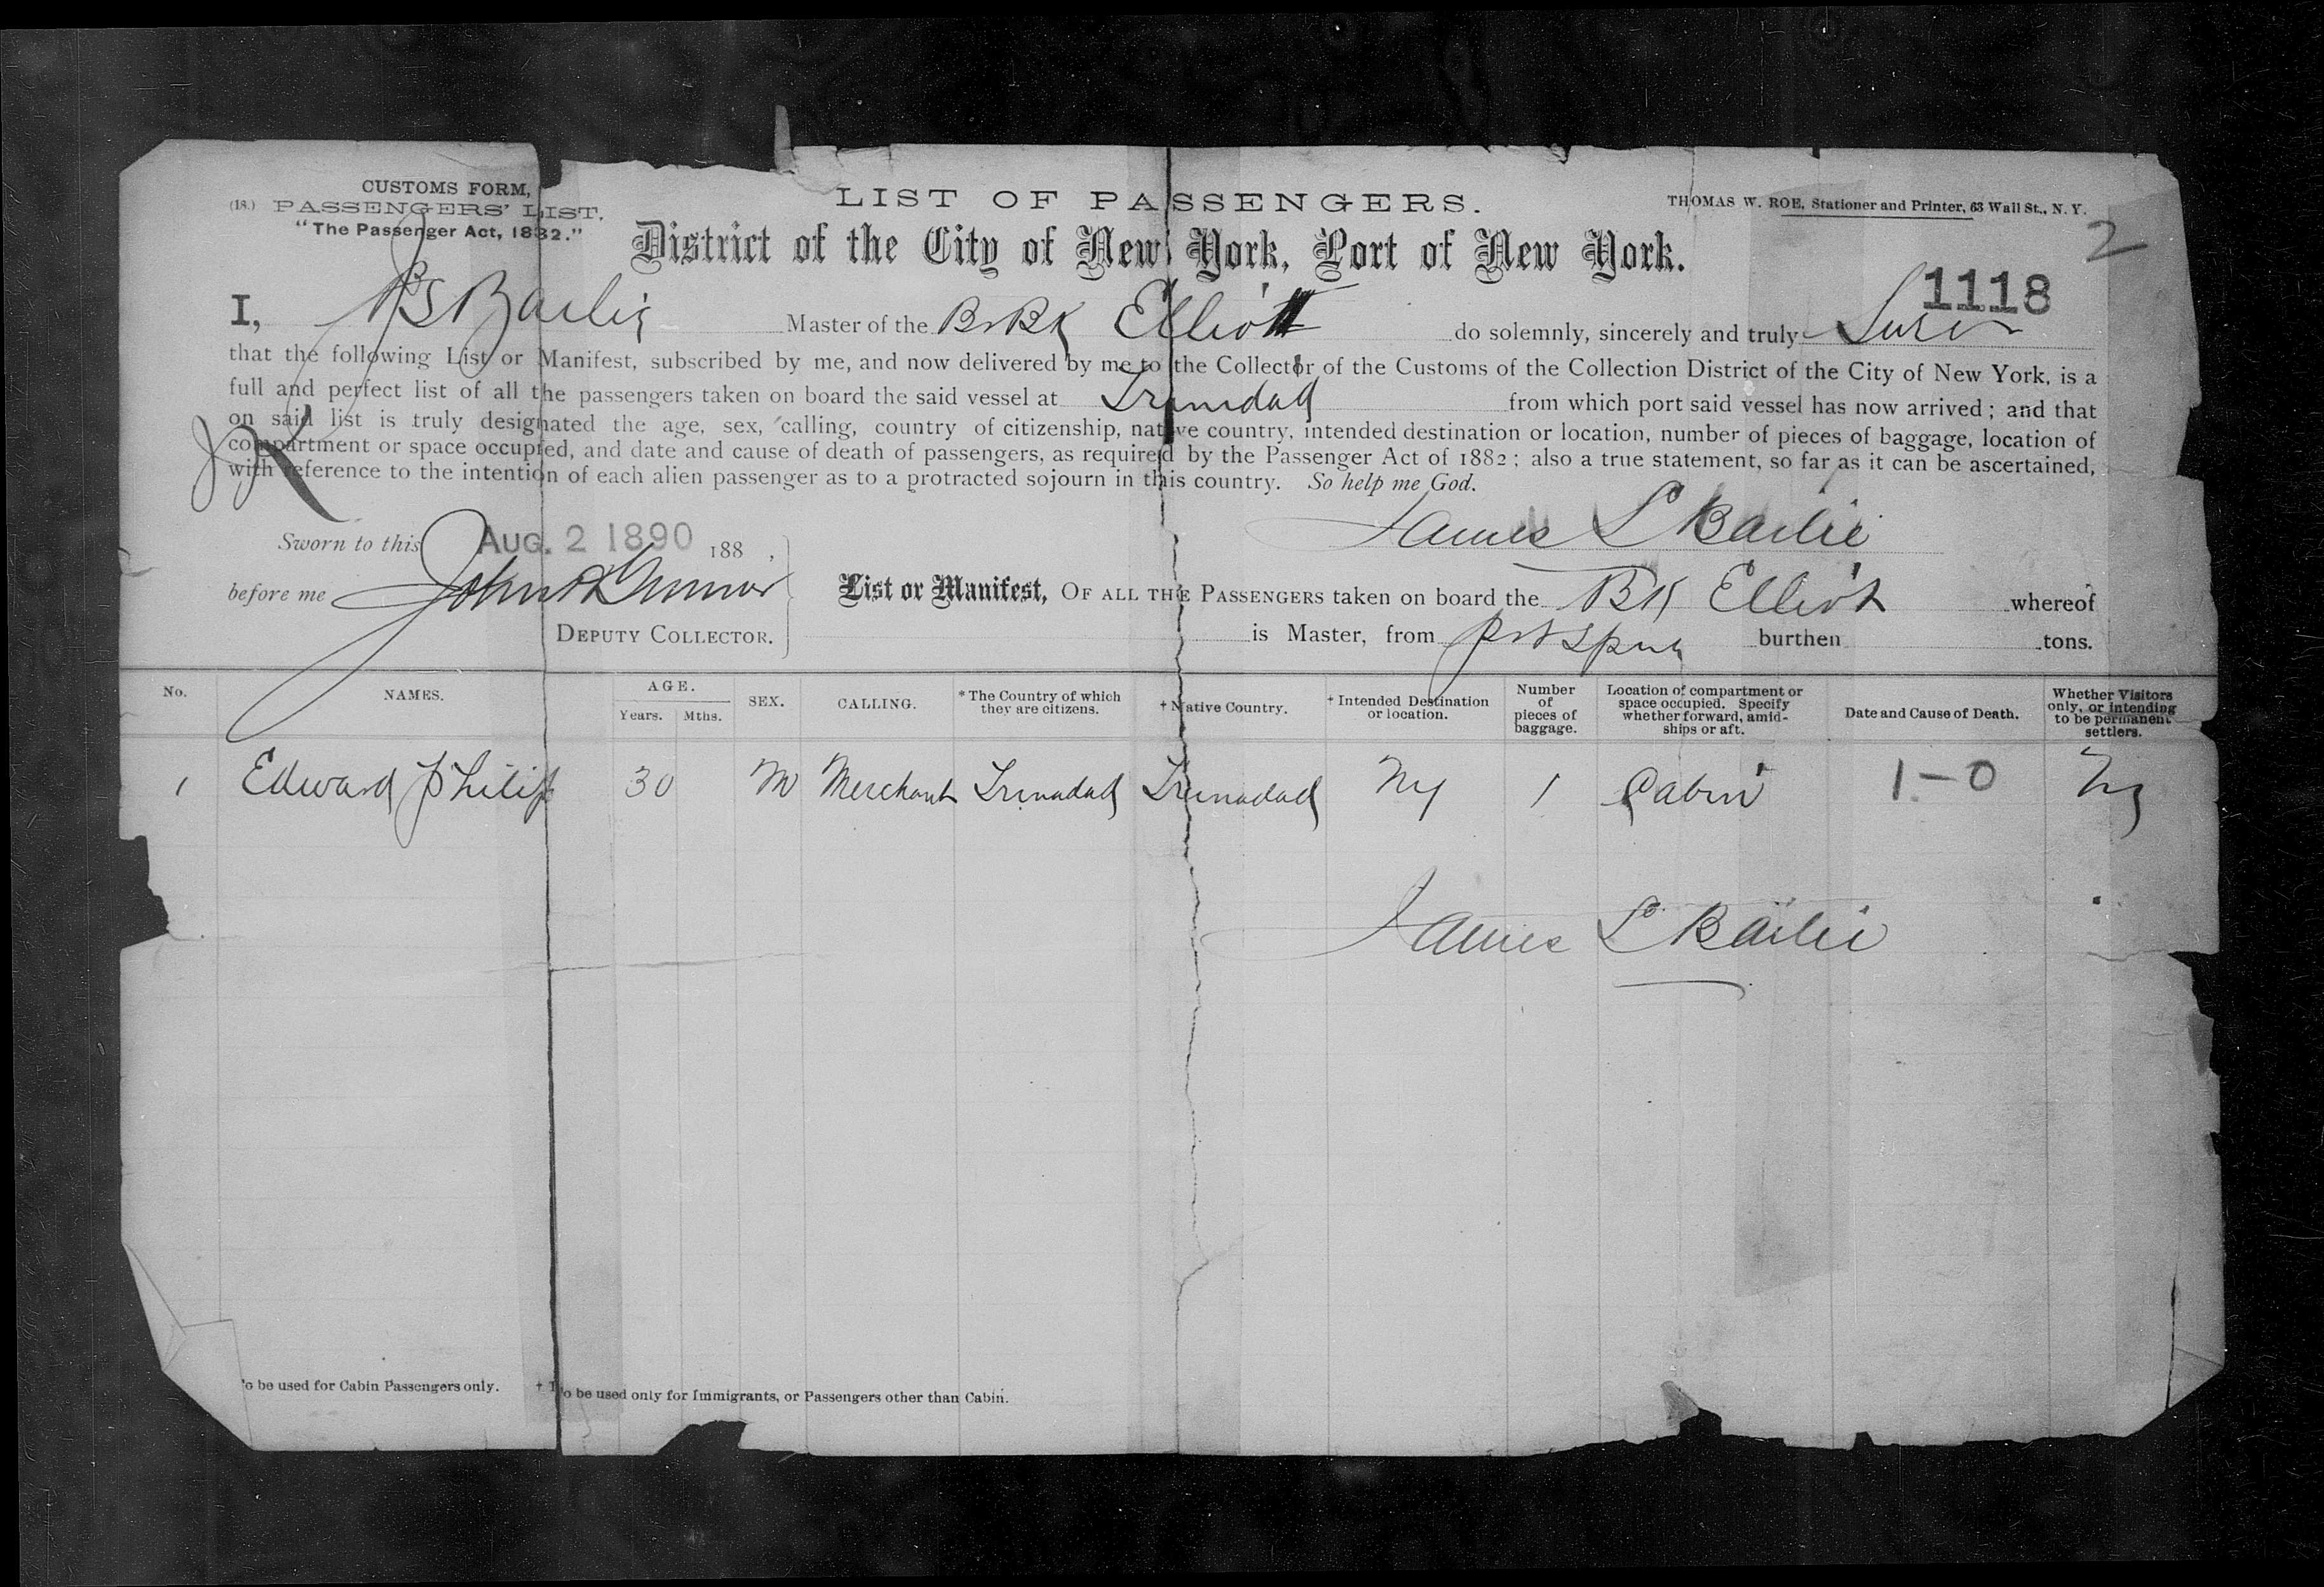 CUSTOMS FORM,
(18.) PASSENGERS' LIST.
"The Passenger Act, 1882."
LIST OF PASSENGERS.
THOMAS W. ROE, Stationer and Printer, 63 Wall St., N. Y.
2
District of the City of New York, Port of New York.
1118
I, Bailey Master of the BrBk Elliott do solemnly, sincerely and truly Swear
that the following List or Manifest, subscribed by me, and now delivered by me to the Collector of the Customs of the Collection District of the City of New York, is a
full and perfect list of all the passengers taken on board the said vessel at Trinidad from which port said vessel has now arrived; and that
on said list is truly designated the age, sex, calling, country of citizenship, native country, intended destination or location, number of pieces of baggage, location of
compartment or space occupied, and date and cause of death of passengers, as required by the Passenger Act of 1882; also a true statement, so far as it can be ascertained,
with reference to the intention of each alien passenger as to a protracted sojourn in this country. So help me God.
James L Bailie
Sworn to this AUG. 2 1890 188 ,
before me John
DEPUTY COLLECTOR.
List or Manifest, OF ALL THE PASSENGERS taken on board the Bk Elliott whereof
is Master, from burthen tons.
No. NAMES. AGE. Years. Mths. SEX. CALLING. * The Country of which they are citizens. † Native Country. † Intended Destination or location. Number of pieces of baggage. Location of compartment or space occupied. Specify whether forward, amid-ships or aft. Date and Cause of Death. Whether Visitors only, or intending to be permanent settlers.
1 Edward Philip 30 M Merchant Trinadad Trinadad Ny 1 Cabin 1-0 Ny
James L Bailie
To be used for Cabin Passengers only. † To be used only for Immigrants, or Passengers other than Cabin.